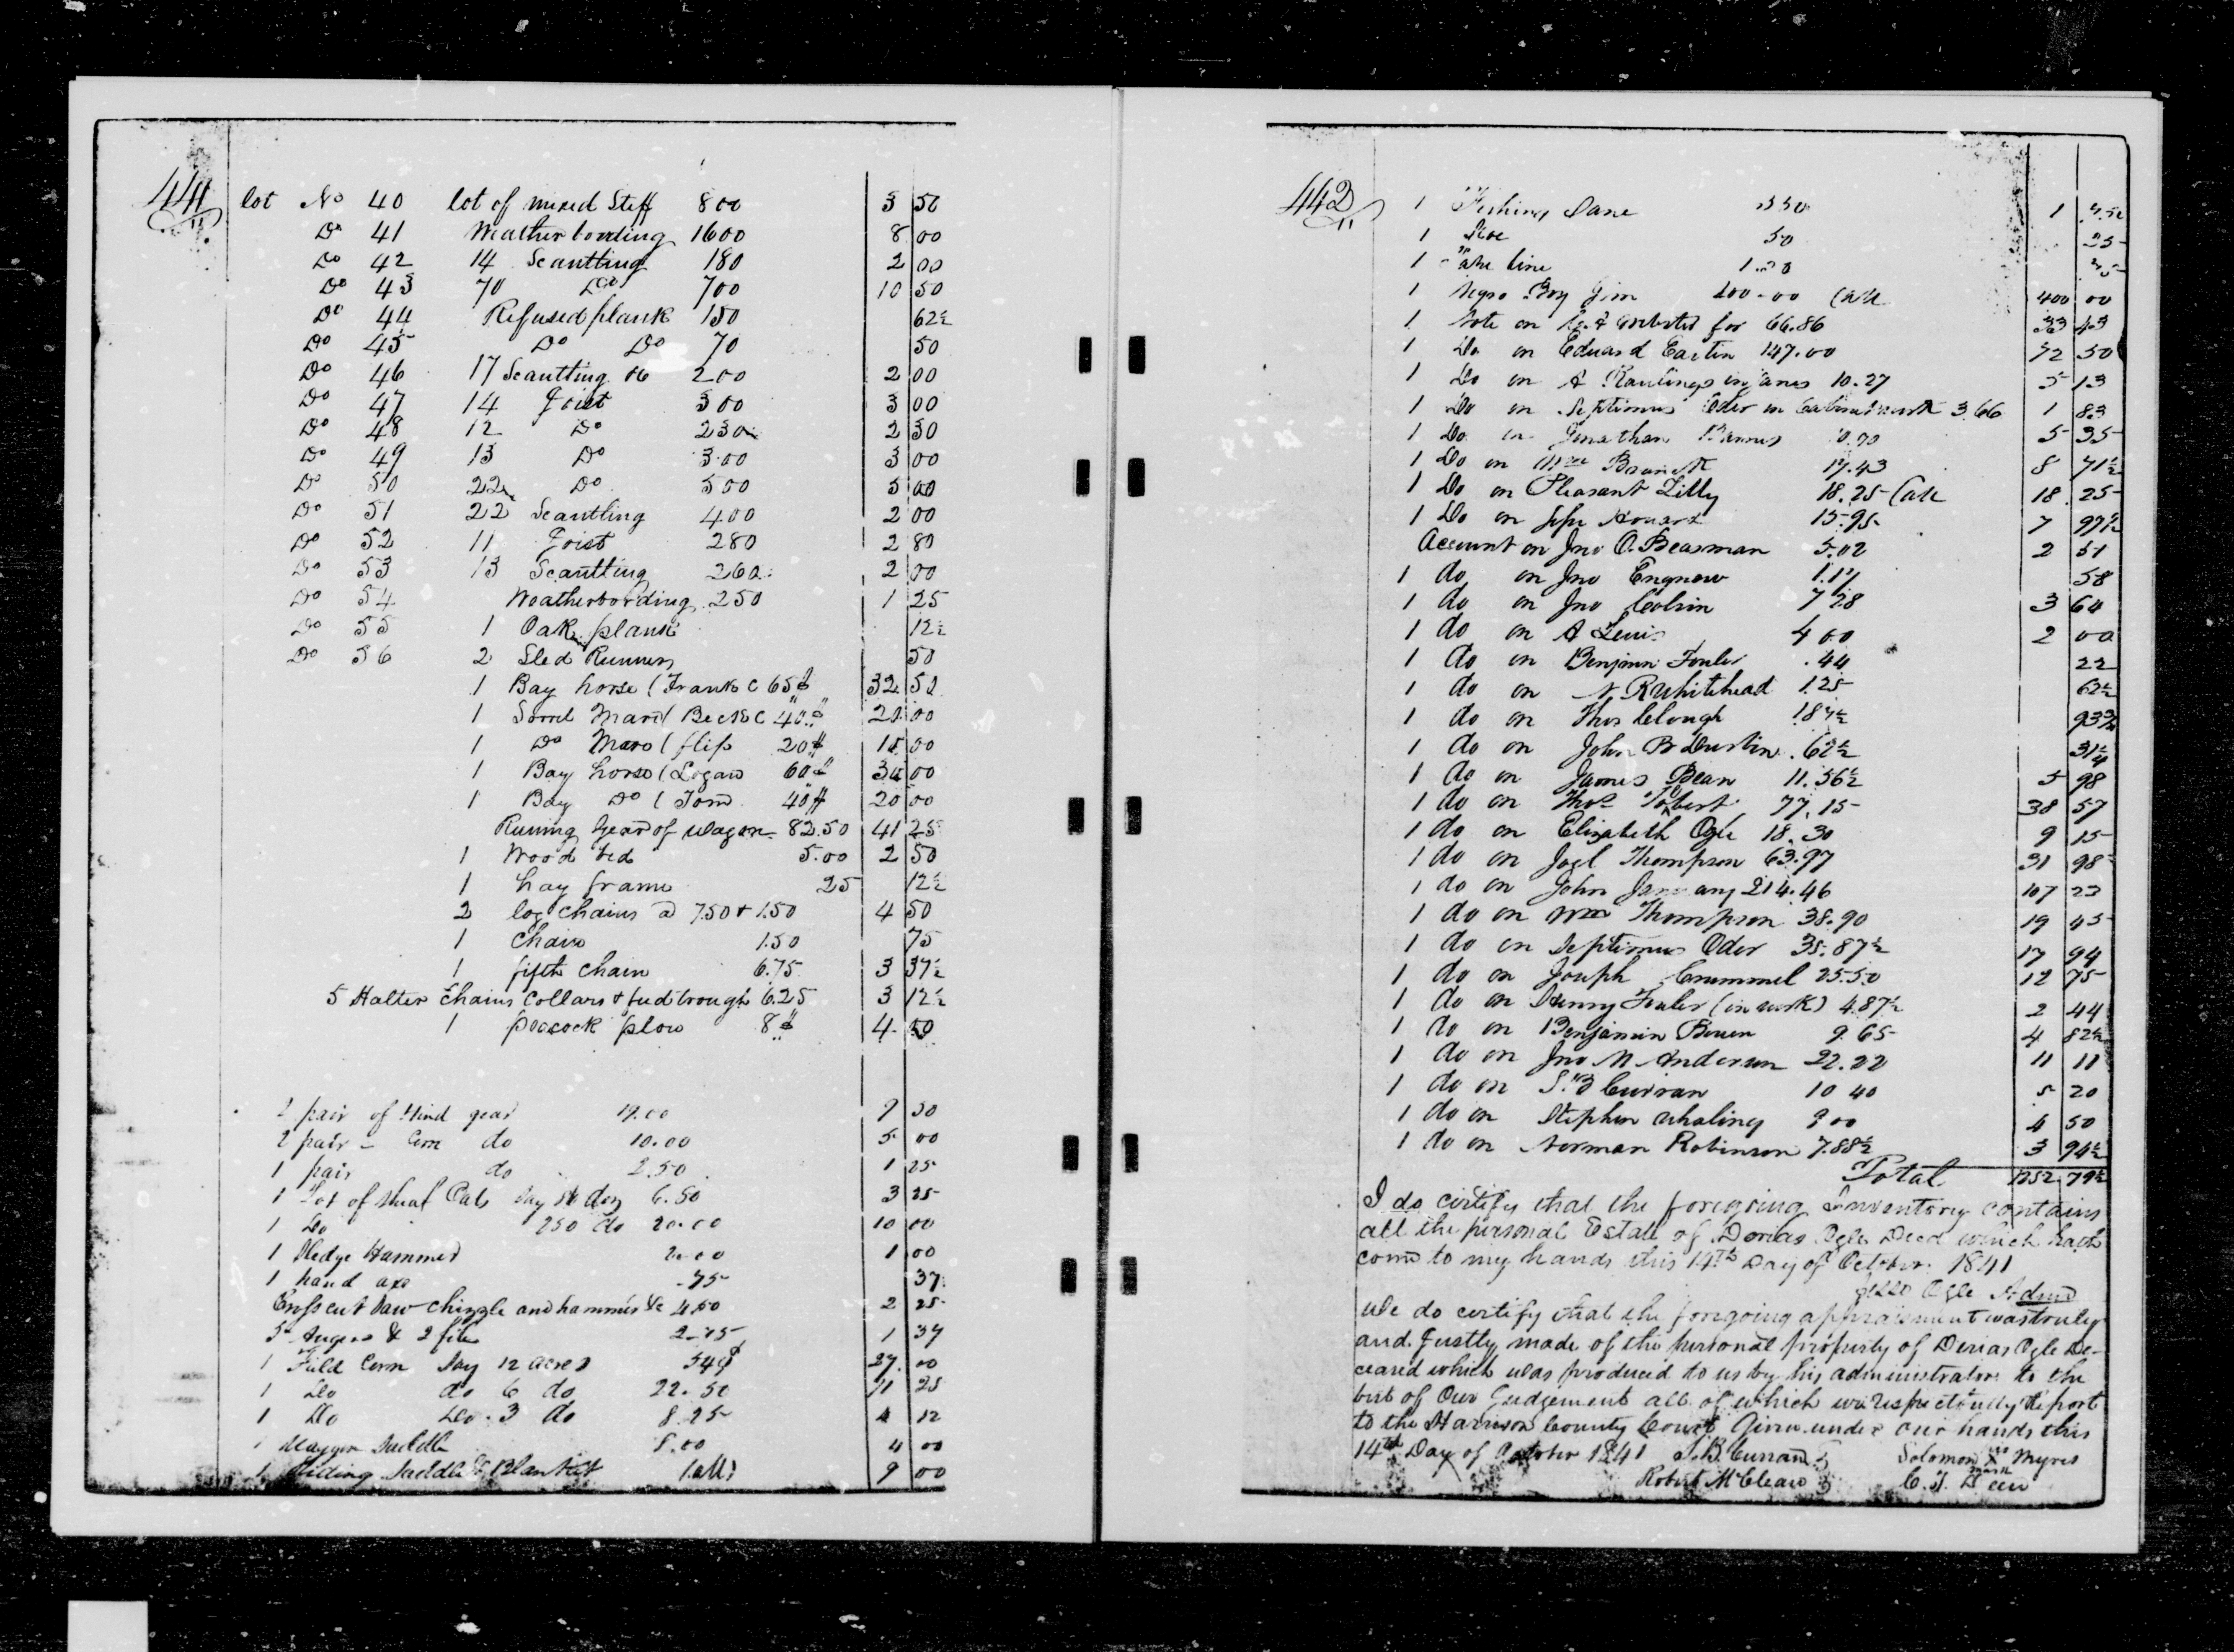 441
lot No 40 lot of mixed Stuff 800 3 50
Do 41 Weatherbording 1600 8 00
Do 42 14 Scantling 180 2 00
Do 43 70 Do 700 10 50
Do 44 Refused plank 150 62½
Do 45 Do Do 70 50
Do 46 17 Scantling 200 2 00
Do 47 14 Joist 300 3 00
Do 48 12 Do 230 2 30
Do 49 13 Do 3.00 3 00
Do 50 22 Do 500 5 00
Do 51 22 Scantling 400 2 00
Do 52 11 Joist 280 2 80
Do 53 13 Scantling 260 2 00
Do 54 Weatherbording 250 1 25
Do 55 1 Oak plank 12½
Do 56 2 Sled Runners 50
1 Bay horse (Frank 65$ 32 50
1 Sorrel Mare ( Beck 40$ 20 00
1 Do Mare ( flip 20$ 10 00
1 Bay horse (Logan 60$ 30 00
1 Bay Do ( Tom 40$ 20 00
Runing Gear of wagon 82.50 41 25
1 Wood bed 5.00 2 50
1 hay frame 25 12½
2 log chains @ 7.50 & 1.50 4 50
1 chain 1.50 75
1 fifth chain 6.75 3 37½
5 Halter Chains Collars & feedtrough 6.25 3 12½
1 peacock plow 8$ 4 00
2 pair of Hind gear 19.00 9 50
2 pair do 10.00 5 00
1 pair do 2.50 1 25
1 Lot of Sheaf Oats Say doz 6.50 3 25
1 Do 250 do 20.00 10 00
1 Sledge Hammer 2.00 1 00
1 hand axe .75 37
Crosscut Saw chizzle and hammers &c 4.50 2 25
5 Augers & 2 files 2.75 1 37
1 Field Corn Say 12 acres 54$ 27 00
1 Do do 6 do 22.50 11 25
1 Do Do 3 do 8.25 4 12
1 Waggon Saddle 8.00 4 00
1 Riding Saddle & Blanket (all) 9 00
442
1 Fishing 3 50 1 75
1 50 25
1 line 1.50 75
1 Negro Boy Jim 400.00 (all 400 00
1 Note on for 66.86 33 43
1 Do on Edward Eastin 147.00 72 50
1 Do on A Rawlings in Janes 10.27 5 13
1 Do on Septimus Oder in Cabinetwork 3.66 1 83
1 Do on Jonathan 10.70 5 35
1 Do on Wm 17.43 8 71½
1 Do on Pleasant Lilly 18.25 (all 18 25
1 Do on Howard 15.95 7 97½
Account on Jno O. Beasman 5.02 2 51
1 do on Jno Engnew 1.17 58
1 do on Jno Colvin 7 28 3 64
1 do on A Lewis 4 00 2 00
1 do on Benjamin Fowler .44 22
1 do on N. R Whitehead 1.25 62½
1 do on Thos Clough 1.87½ 93¾
1 do on John B Durbin .62½ 31¼
1 do on James Bean 11.56½ 5 98
1 do on Thos Tolbert 77.15 38 57
1 do on Elizabeth Ogle 18.30 9 15
1 do on Joel Thompson 63.97 31 98
1 do on John January 214.46 107 23
1 do on Wm Thompson 38.90 19 45
1 do on Septimus Oder 35.87½ 17 94
1 do on Joseph Crummel 25.50 12 75
1 do on Henry Fowler (in work) 4.87½ 2 44
1 do on Benjamin Bowen 9.65 4 82½
1 do on Jno M Anderson 22.22 11 11
1 do on S. B Curran 10 40 5 20
1 do on Stephen Whaling 9 00 4 50
1 do on Norman Robinson 7.88½ 3 94½
Total 1252 79½
I do certify that the foregoing Inventory contains
all the personal Estate of Dorias Ogle Decd which hath
come to my hands this 14th Day of October 1841
Jesse Ogle Admr
We do certify that the foregoing appraisement was truly
and Justly made of the personal property of Dorias Ogle De-
ceased which was produced to us by his administrator to the
best of Our Judgement all of which we respectfully Report
to the Harrison County Court Given under our hands this
14th Day of October 1841 S. B. Curran Solomon X Myres
mark
Robert McClean C. T. Deen